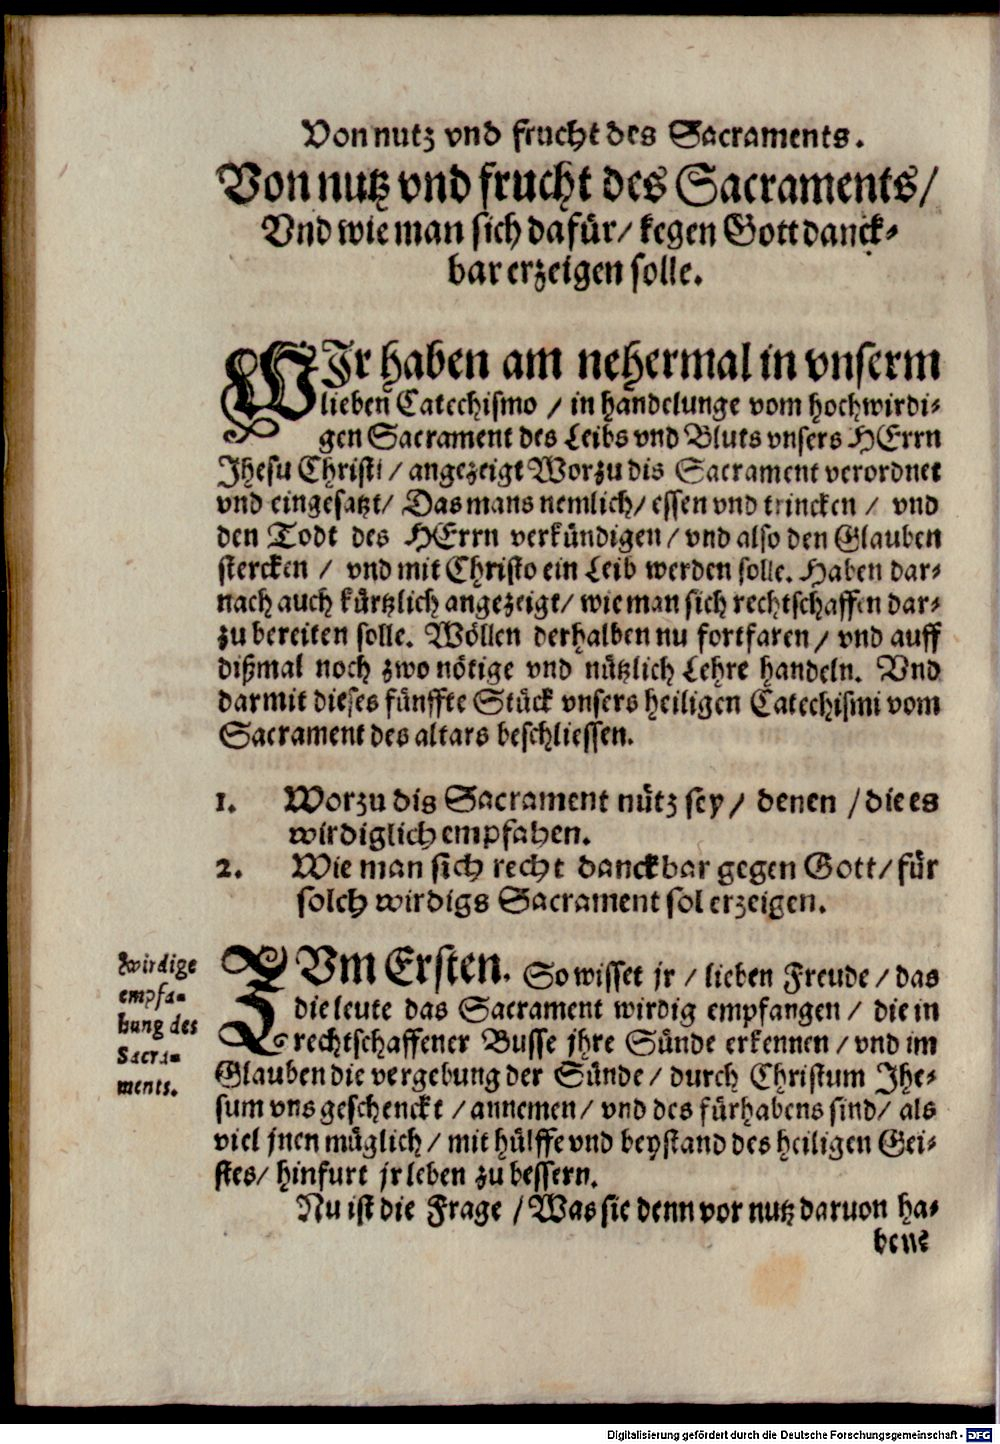 Von nutz vnd frucht des Sacraments.
Von nutz vnd frucht des Sacraments/
Vnd wie man sich dafür/ kegen Gott danck-
bar erzeigen solle.
WJr haben am nehermal in vnserm
lieben Catechismo / in handelunge vom hochwirdi-
gen Sacrament des Leibs vnd Bluts vnsers HErrn
Jhesu Christi/ angezeigt Worzu dis Sacrament verordnet
vnd eingesatzt/ Das mans nemlich/ essen vnd trincken / vnd
den Todt des HErrn verkündigen/ vnd also den Glauben
stercken / vnd mit Christo ein Leib werden solle. Haben dar-
nach auch kürtzlich angezeigt/ wie man sich rechtschaffen dar-
zu bereiten solle. Wöllen derhalben nu fortfaren/ vnd auff
dißmal noch zwo nötige vnd nützlich Lehre handeln. Vnd
darmit dieses fünffte Stück vnsers heiligen Catechismi vom
Sacrament des altars beschliessen.
1. Worzu dis Sacrament nütz sey/ denen /die es
wirdiglich empfahen.
2. Wie man sich recht danckbar gegen Gott/ für
solch wirdigs Sacrament sol erzeigen.
wirdige
empfa-
hung des
Sacra-
ments.
ZVm Ersten. So wisset jr / lieben Freude / das
die leute das Sacrament wirdig empfangen / die in
rechtschaffener Busse jhre Sünde erkennen / vnd im
Glauben die vergebung der Sünde/ durch Christum Jhe-
sum vns geschenckt / annemen/ vnd des fürhabens sind/ als
viel jnen müglich/ mit hülffe vnd beystand des heiligen Gei-
stes/ hinfurt jr leben zu bessern.
Nu ist die Frage / Was sie denn vor nutz daruon ha-
ben?
Digitalisierung gefördert durch die Deutsche Forschungsgemeinschaft - DFG